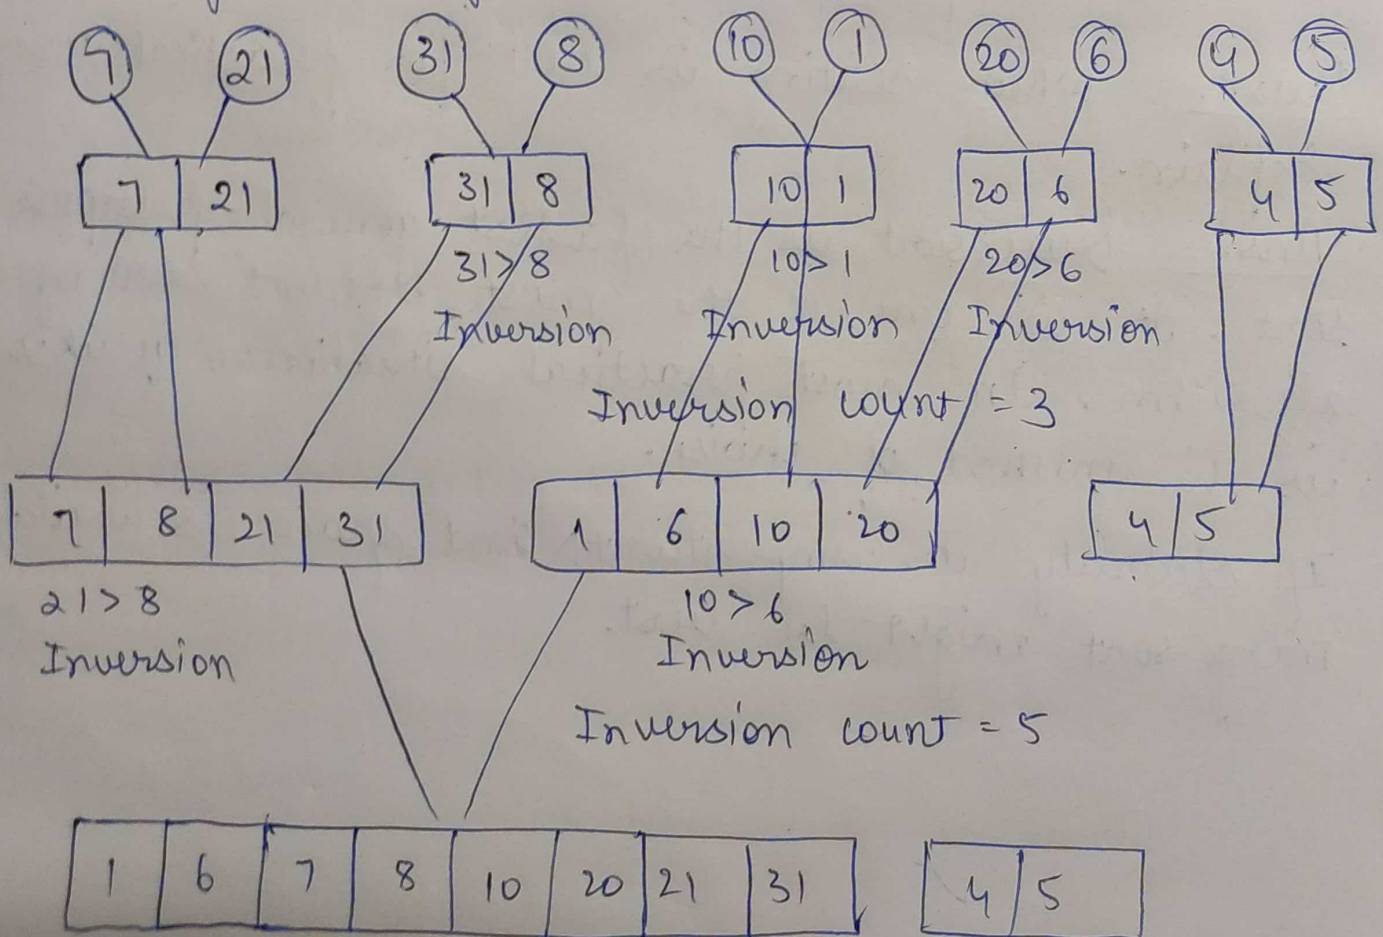 7 21 31 8 10 1 20 6 4 5
7 21 31 8 10 1 20 6 4 5
31>8 10>1 20>6
Inversion Inversion Inversion
Inversion count = 3
7 8 21 31 1 6 10 20 4 5
21>8 10>6
Inversion Inversion
Inversion count = 5
1 6 7 8 10 20 21 31 4 5